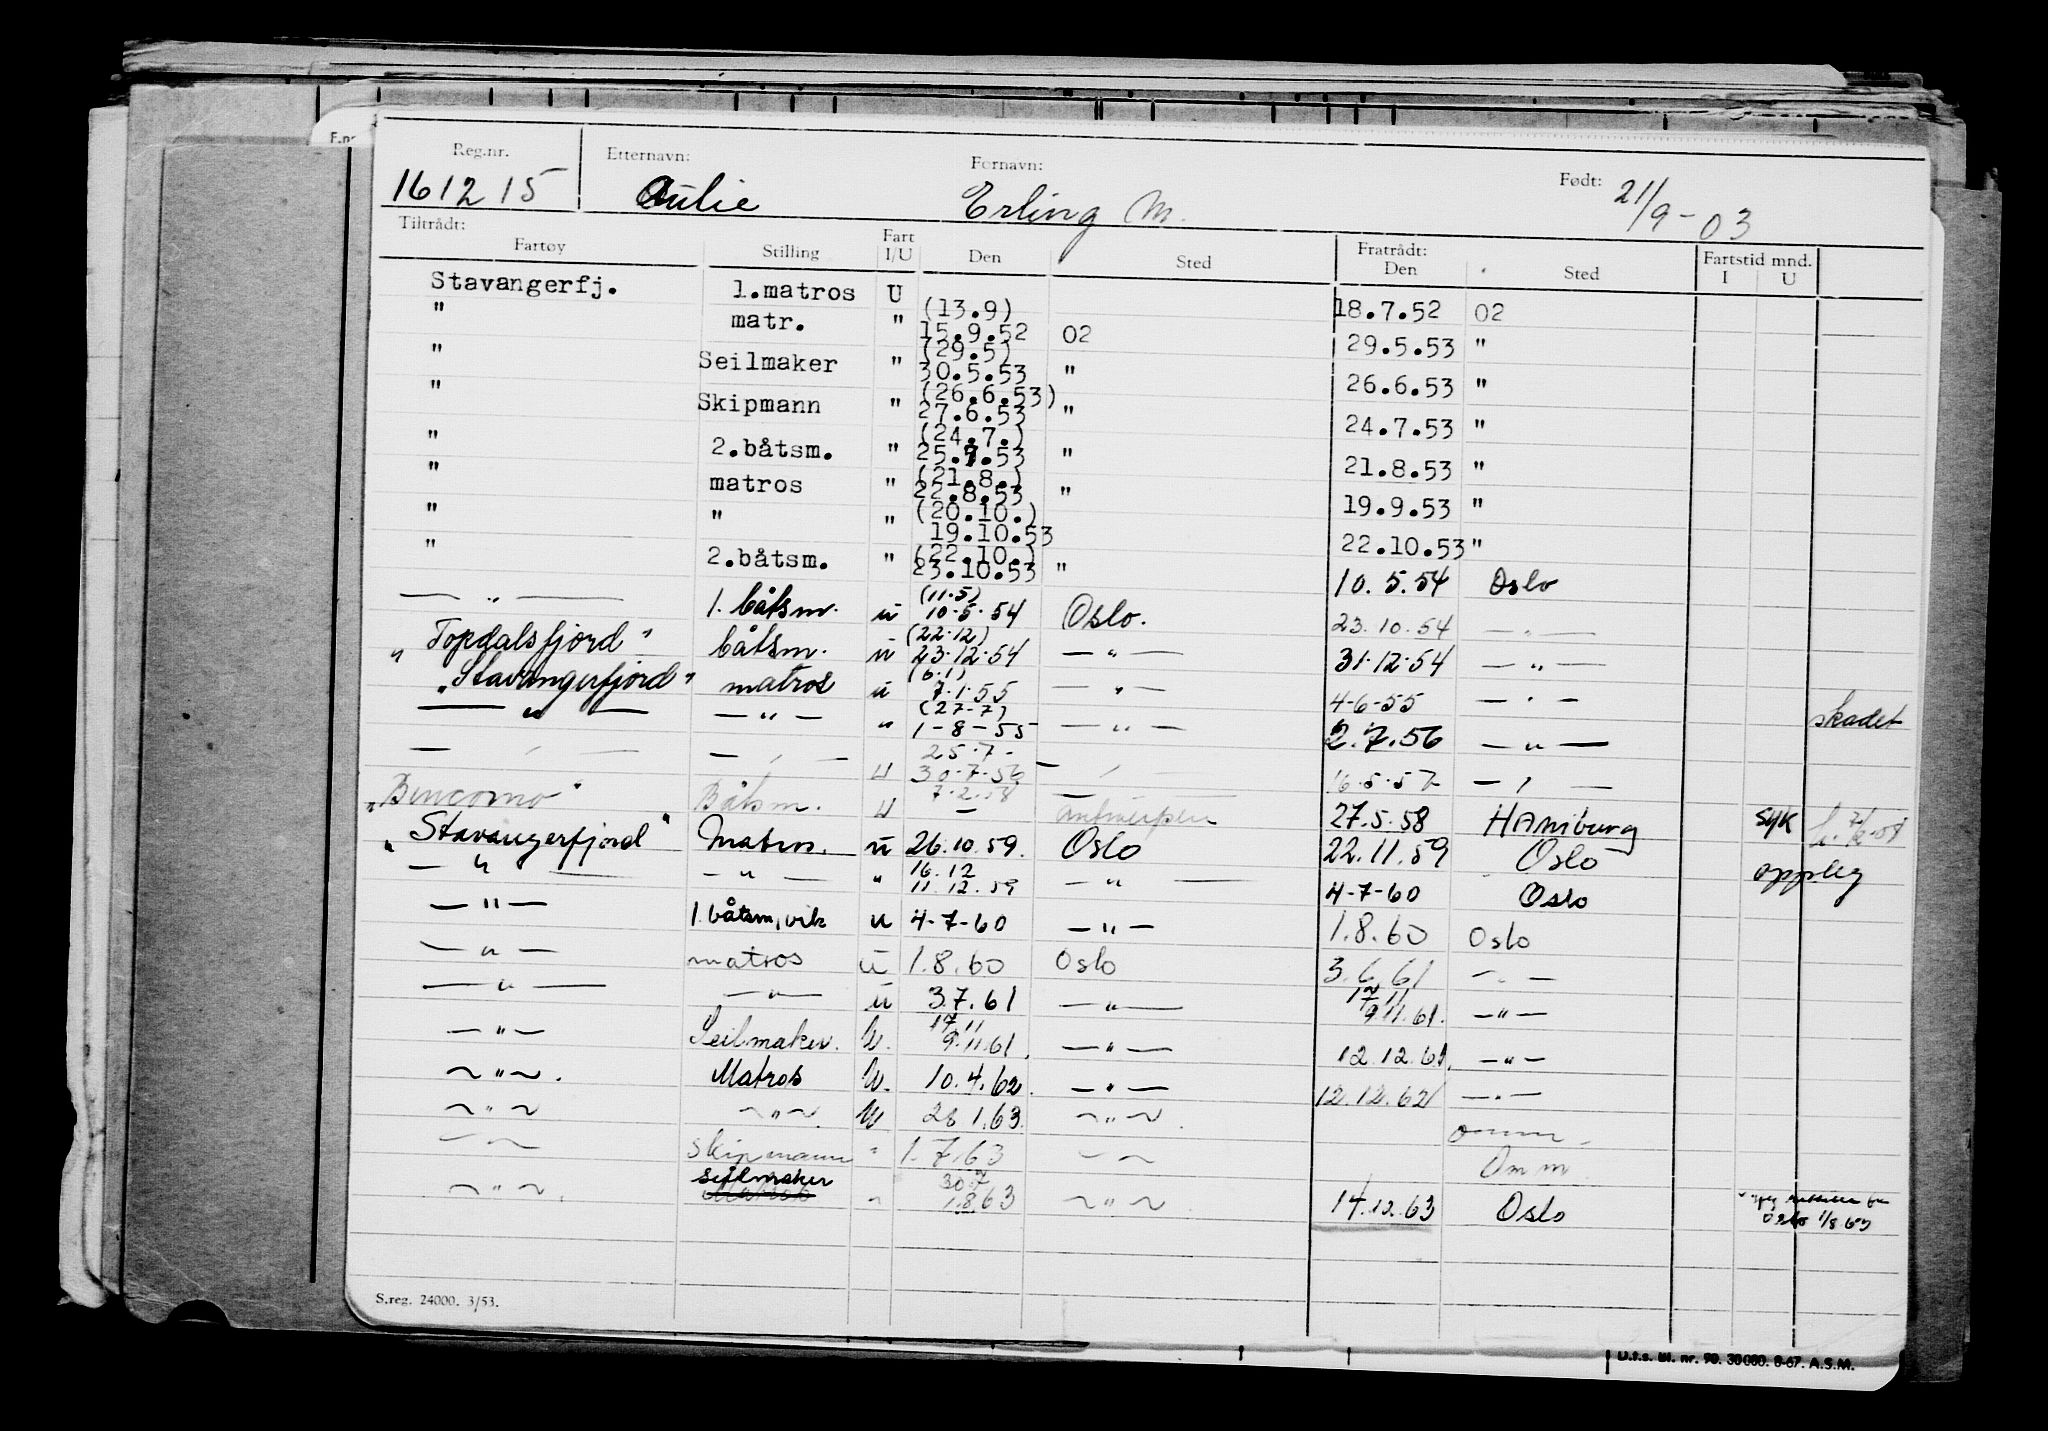 F.nr
Reg.nr. Etternavn: Fornavn: Født:
161215 Aulie Erling M. 21/9-03
Tiltrådt: Fratrådt:
Fartøy Stilling Fart I/U Den Sted Den Sted Fartstid mnd. I U
Stavangerfj. 1.matros U 18.7.52 02
" matr. " (13.9) 15.9.52 02 29.5.53 "
" Seilmaker " (29.5) 30.5.53 " 26.6.53 "
" Skipmann " (26.6.53) 27.6.53 " 24.7.53 "
" 2.båtsm. " (24.7.) 25.7.53 " 21.8.53 "
" matros " (21.8.) 22.8.53 " 19.9.53 "
" " " (20.10.) 19.10.53 22.10.53 "
" 2.båtsm. " (22.10.) 23.10.53 " 10.5.54 Oslo
— " — 1. båtsm. u (11.5) 10.5.54 Oslo. 23.10.54 — " —
"Topdalsfjord" båtsm. u (22.12) 23.12.54 — " — 31.12.54 — " —
"Stavangerfjord" matros u (6.1) 7.1.55 — " — 4-6-55 — " — skadet
— " — — " — " (27-7) 1-8-55 — " — 2.7.56 — " —
— " — — " — u 25.7- 30.7.56 — " — 16.5.57 — " —
"Bencomo" Båtsm. u 7.2.58 — Antwerpen 27.5.58 Hamburg syk
"Stavangerfjord" Matros. u 26.10.59. Oslo 22.11.59 Oslo oppleg
— " — — " — " 16.12 11.12.59 — " — 4-7-60 Oslo
— " — 1. båtsm, vik u 4-7-60 — " — 1.8.60 Oslo
— " — matros u 1.8.60 Oslo 3.6.61 — " —
— " — — " — u 3.7.61 — " — 17.11 9.11.61. — " —
— " — Seilmaker. U. 17.11 9.11.61. — " — 12.12.61. — " —
— " — . Matros U. 10.4.62. — " — 12.12.62 — " —
— " — — " — U 28.1.63. — " — . omm.
— " — Skipmann " 1.7.63 — " — Omm
— " — . Seilmaker " 30.7 1.8.63 — " — . 14.12.63 Oslo Oslo 1/8 63
S.reg. 24000. 3/53.
U.t.s. bl. nr. 90. 30 000. 8-67. A.S.M.